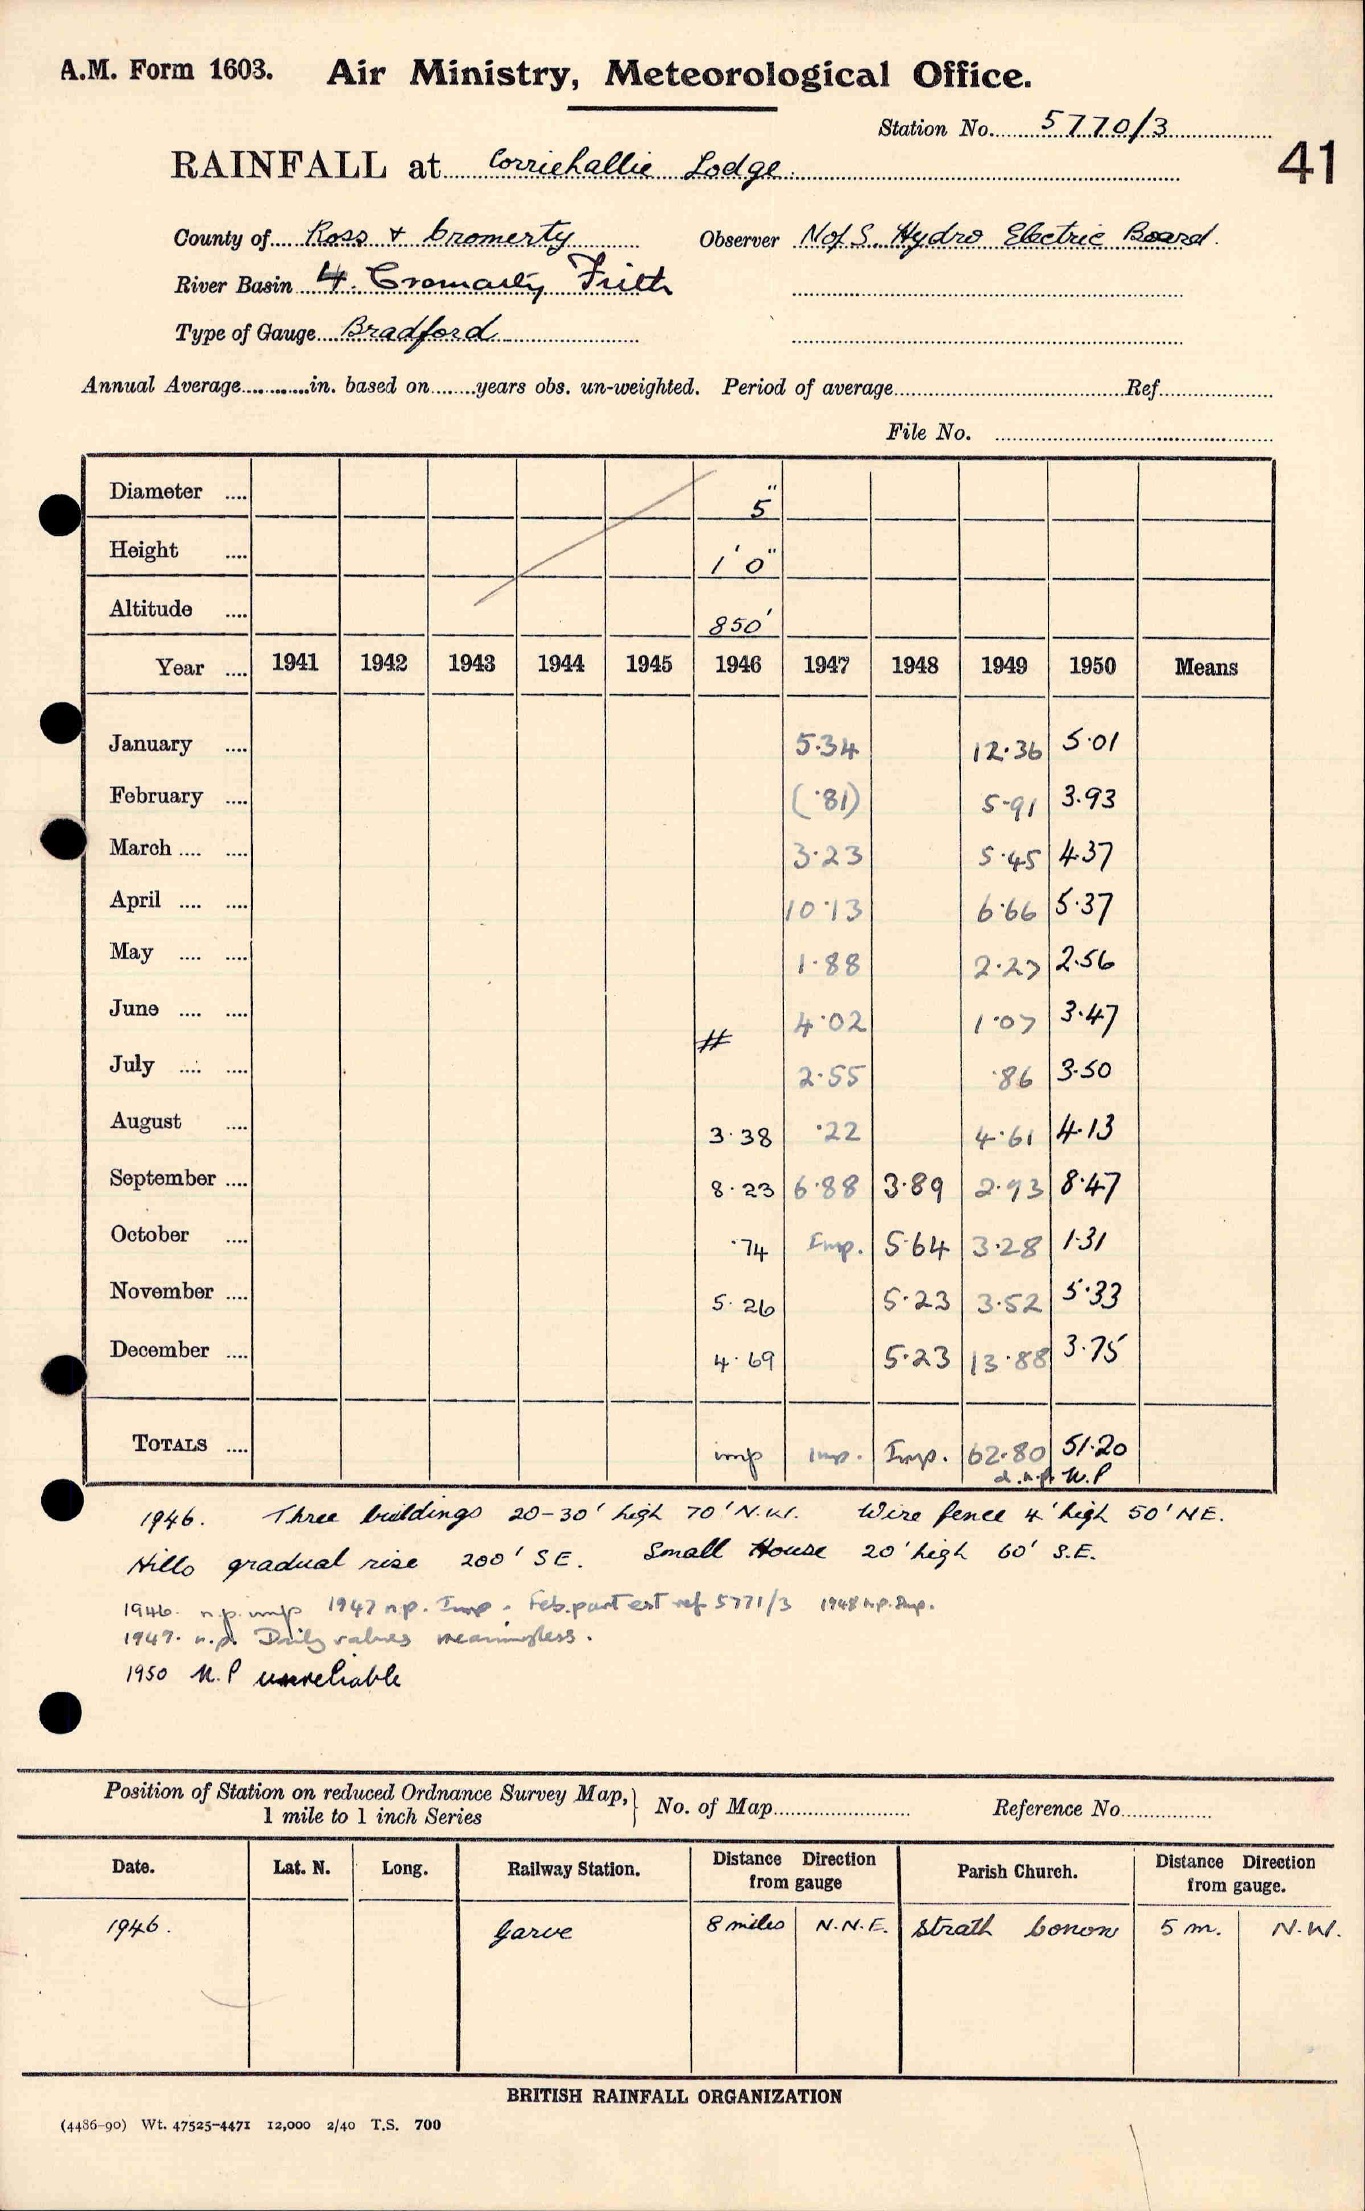 A.M. Form 1603. Air Ministry, Meteorological Office.
Station No. 5770/3
41
RAINFALL at Corriehallie Lodge.
County of Ross & Cromerty Observer N of S. Hydro Electric Board.
River Basin 4. Cromarty Frith
Type of Gauge Bradford
Annual Average in. based on years obs. un-weighted. Period of average Ref.
File No.
Diameter 5"
Height 1' 0"
Altitude 850'
Year 1941 1942 1943 1944 1945 1946 1947 1948 1949 1950 Means
January 5.34 12.36 5.01
February (.81) 5.91 3.93
March 3.23 5.45 4.37
April 10.13 6.66 5.37
May 1.88 2.27 2.56
June 4.02 1.07 3.47
#
July 2.55 .86 3.50
August 3.38 .22 4.61 4.13
September 8.23 6.88 3.89 2.93 8.47
October .74 Imp. 5.64 3.28 1.31
November 5.26 5.23 3.52 5.33
December 4.69 5.23 13.88 3.75
TOTALS imp Imp. Imp. 62.80 51.20
d.n.p. N.P
1946. Three buildings 20-30' high 70' N.W. Wire fence 4' high 50' NE.
Hills gradual rise 200' SE. Small House 20' high 60' S.E.
1946. n.p. imp 1947 n.p. Imp. Feb. part est ref 5771/3 1948 n.p. Imp.
1949. n.p. Daily values meaningless.
1950 N.P unreliable
Position of Station on reduced Ordnance Survey Map, 1 mile to 1 inch Series } No. of Map Reference No.
Date. Lat. N. Long. Railway Station. Distance Direction from gauge Parish Church. Distance Direction from gauge.
1946. Garve 8 miles N.N.E. Strath Conon 5 m. N.W.
BRITISH RAINFALL ORGANIZATION
(4486-90) Wt. 47525-4471 12,000 2/40 T.S. 700